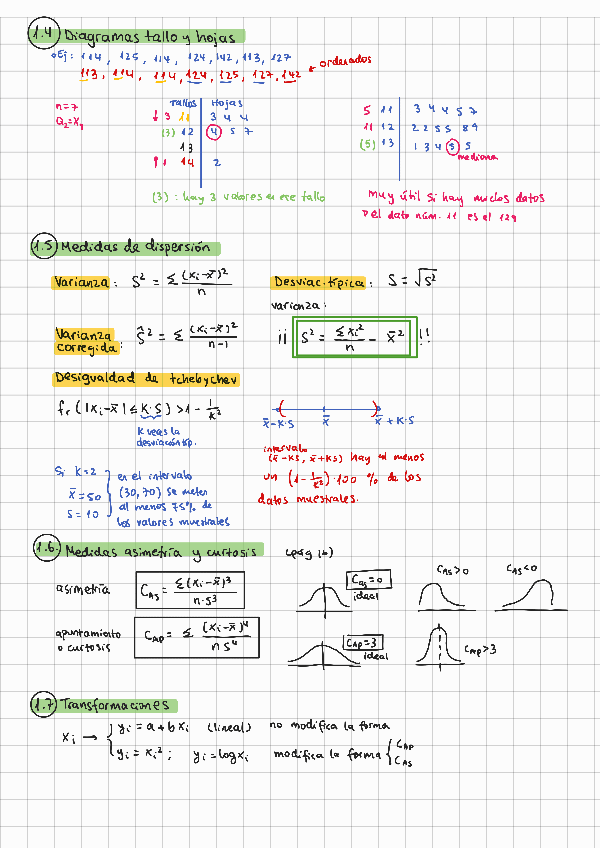 1.4 Diagramas tallo y hojas
Ej: 114, 125, 114, 124, 142, 113, 127
113, 114, 114, 124, 125, 127, 142 ← ordenados
n=7
Q₂=X₄
Tallos Hojas
↓ 3 11 3 4 4
(3) 12 4 5 7
13
↑ 1 14 2
(3): hay 3 valores en ese tallo
5 11 3 4 4 5 7
11 12 2 2 5 5 8 9
(5) 13 1 3 4 5 5
mediana
Muy útil si hay muchos datos
del dato núm. 11 es el 129
1.5 Medidas de dispersión
Varianza: S² = Σ (xi-x̄)²/n
Desviac. típica: S = √S²
varianza:
Varianza corregida: Ŝ² = Σ (xi-x̄)²/n-1
¡¡ S² = Σxi²/n - x̄² !!
Desigualdad de tchebychev
fr (|xi-x̄| ≤ K·S) > 1 - 1/K²
K veces la
desviación típ.
x̄-K·S x̄ x̄+K·S
intervalo
(x̄-KS, x̄+KS) hay al menos
un (1-1/K²)·100 % de los
datos muestrales.
Si K=2
x̄=50
S=10
en el intervalo
(30,70) se meten
al menos 75% de
los valores muestrales
1.6. Medidas asimetría y curtosis (pág 16)
asimetría C_AS = Σ(xi-x̄)³/n·s³
C_AS=0
ideal
C_AS>0
C_AS<0
apuntamiento
o curtosis
C_AP = Σ (xi-x̄)⁴/n s⁴
C_AP=3
ideal
C_AP>3
1.7 Transformaciones
xi → { yi = a+b xi (lineal) no modifica la forma
yi = xi²; yi=logxi modifica la forma { C_AP
C_AS